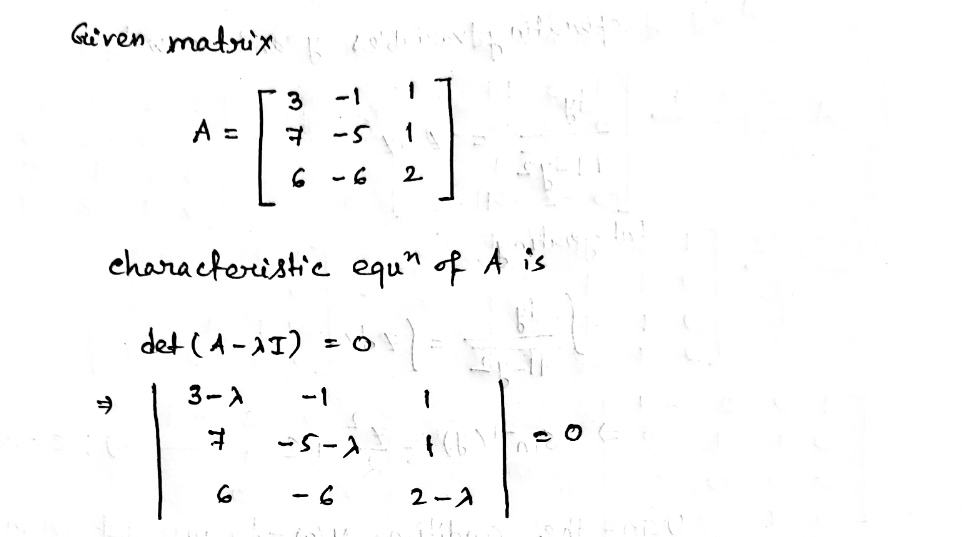 Given matrix
A = [ 3 -1 1
7 -5 1
6 -6 2 ]
characteristic equⁿ of A is
det (A - λI) = 0
⇒ | 3-λ -1 1 |
| 7 -5-λ 1 | = 0
| 6 -6 2-λ |